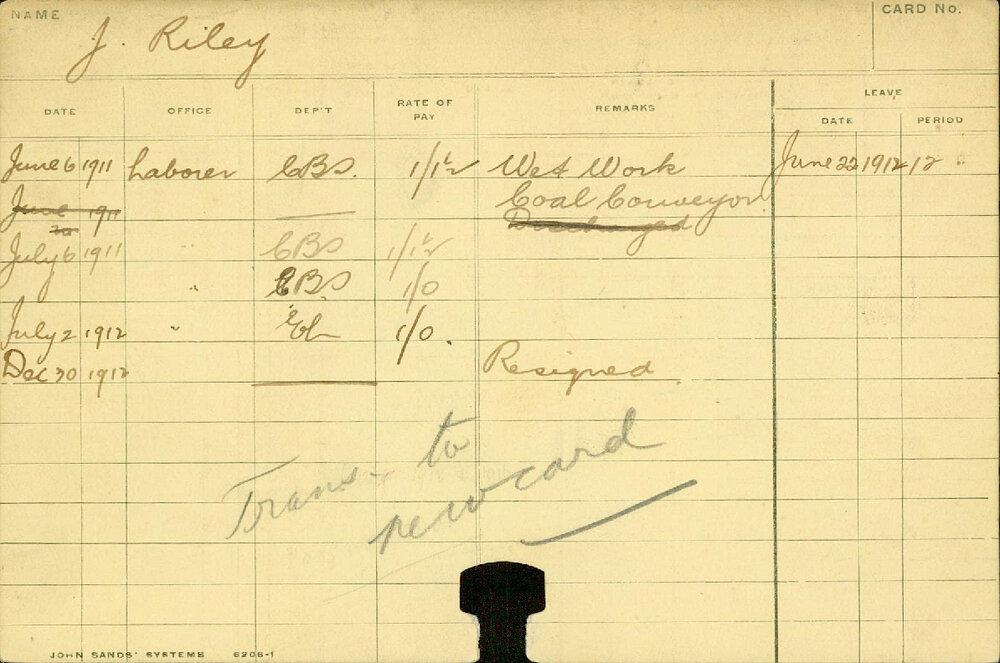 NAME J. Riley CARD No.
LEAVE
DATE OFFICE DEP'T RATE OF PAY REMARKS DATE PERIOD
June 6 1911 Laborer CBS. 1/1½ Wet Work June 22 1912 12
June 1911 Coal Conveyor
Discharged
July 6 1911 " CBS 1/1½
" CBS 1/0
July 2 1912 " 1/0.
Dec 30 1912 Resigned
Trans to
new card
JOHN SANDS' SYSTEMS 6206-1